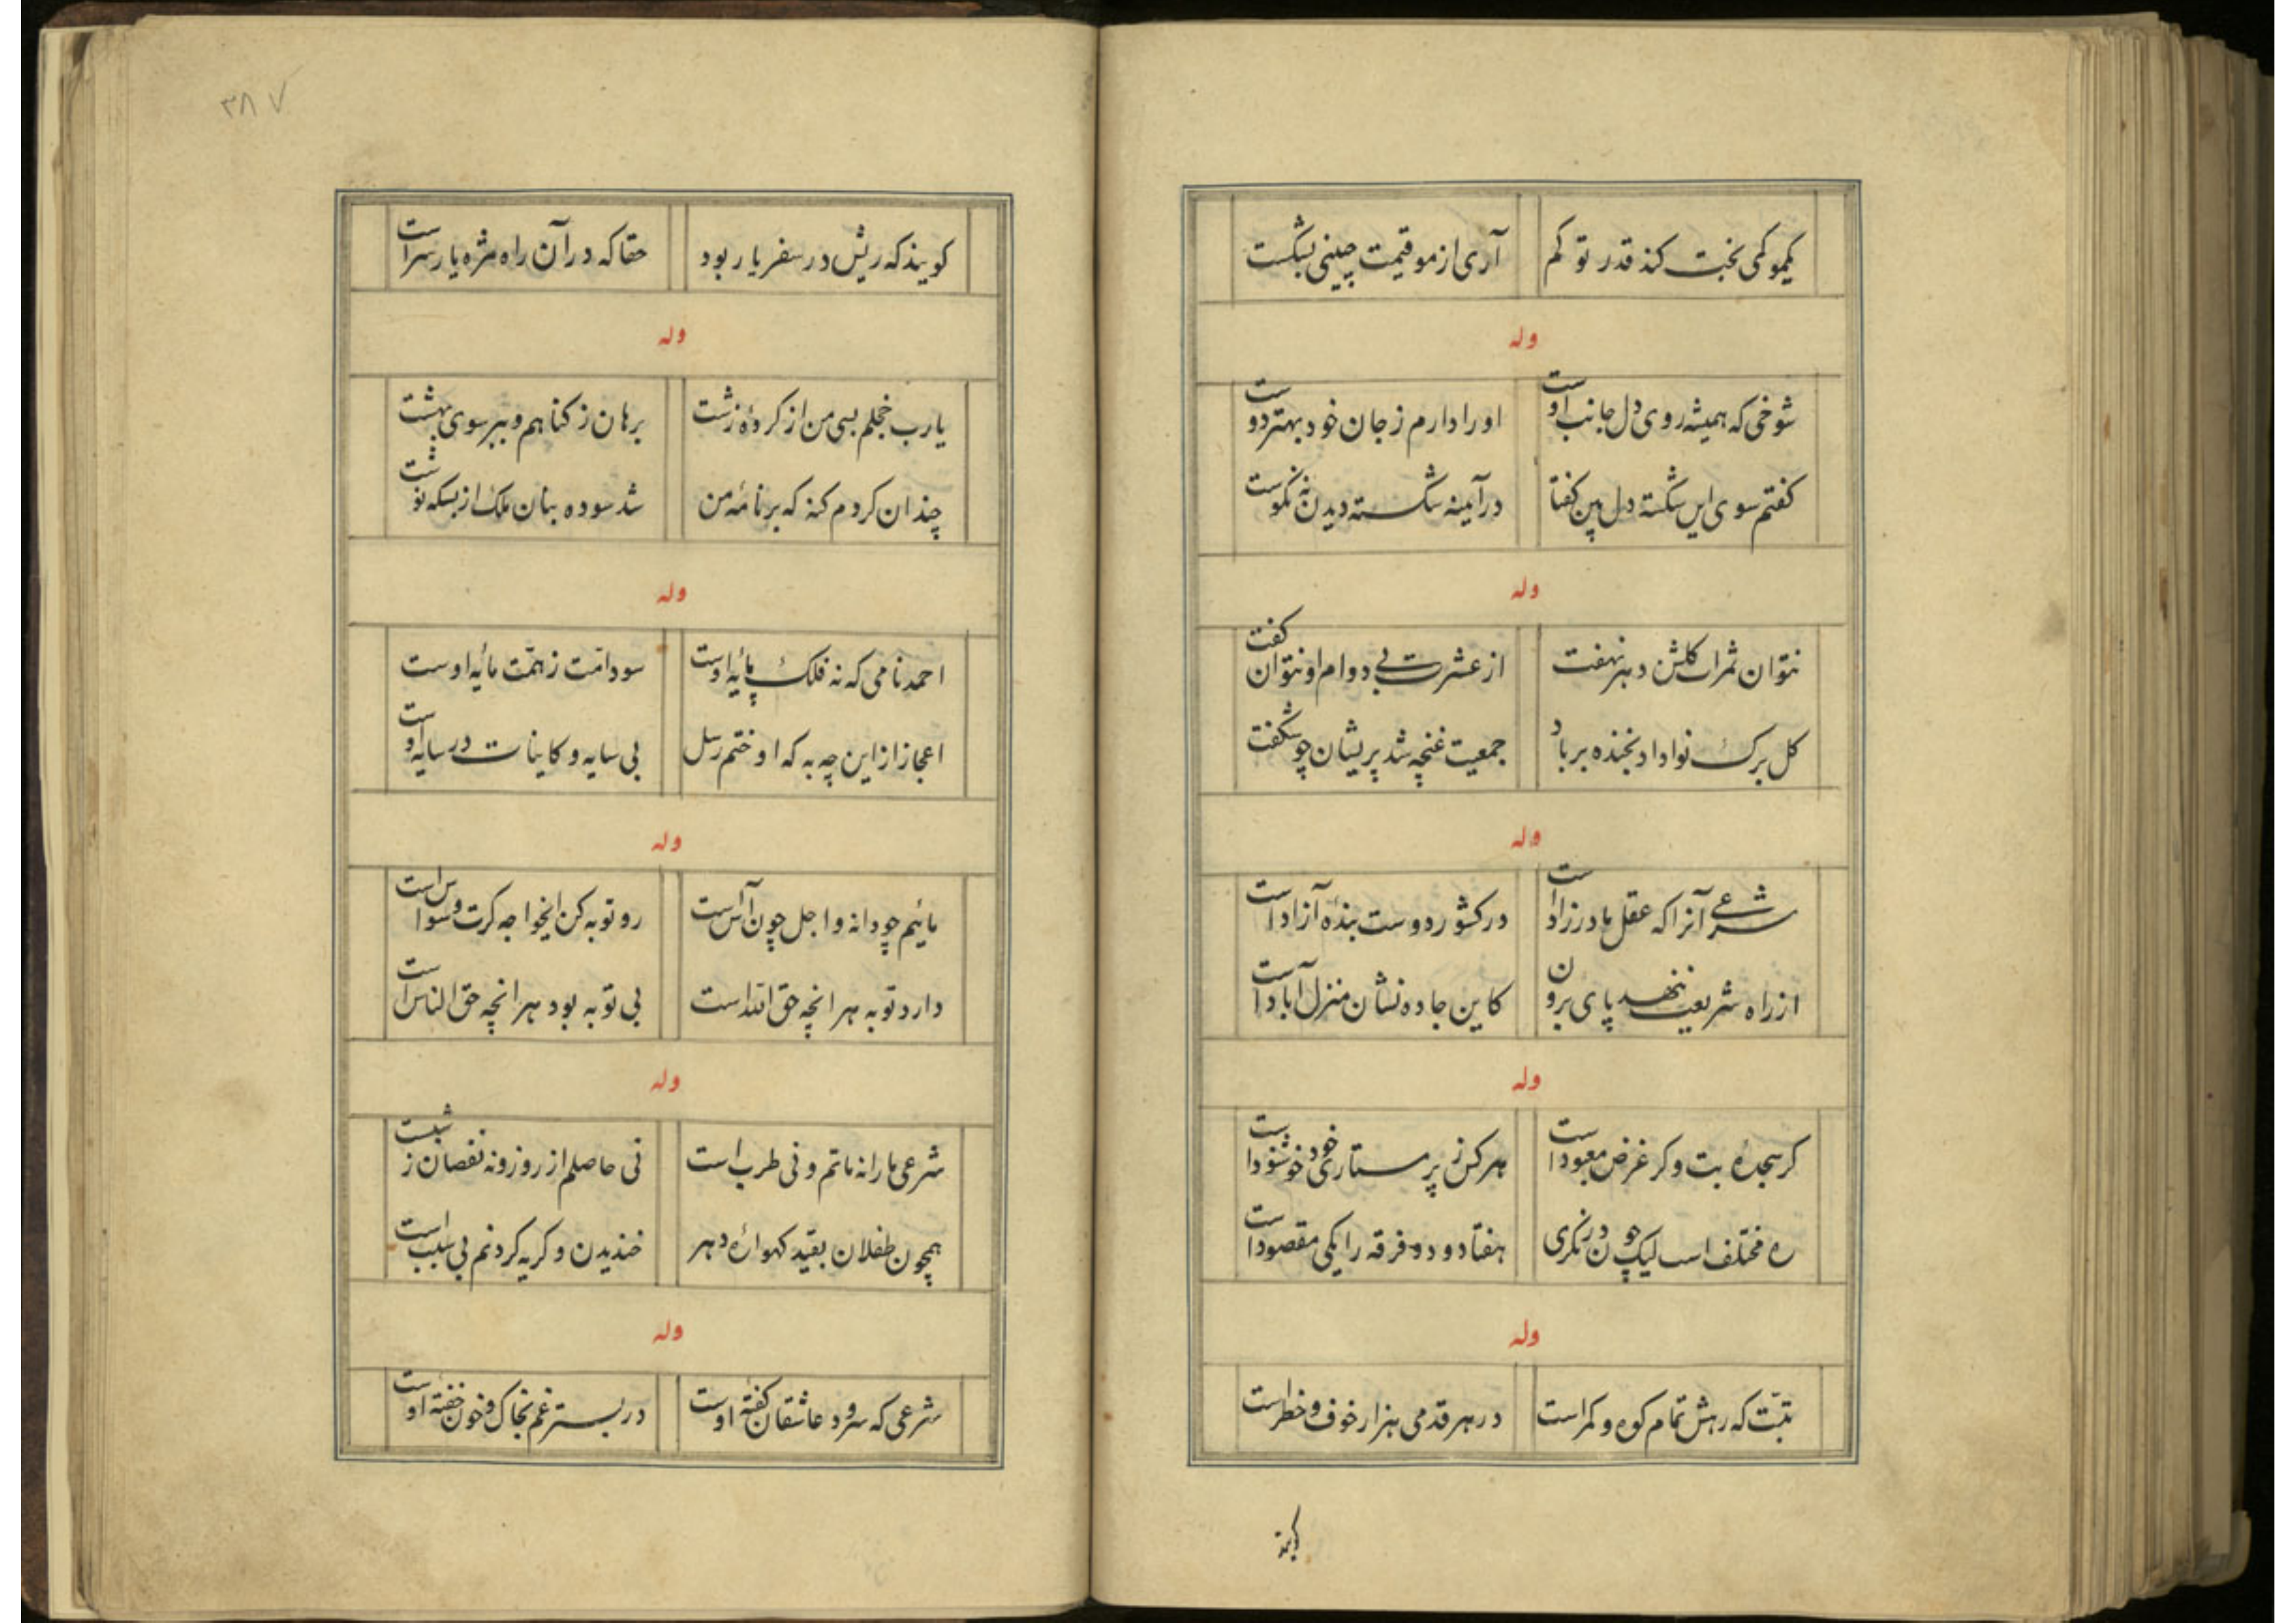 یکمو کمی بخت کند قدر تو کم آری از مو قیمت چینی بشکست
وله
شوخی که همیشه روی دل جانب اوست او را دارم ز جان خود بهتر دوست
کفتم سوی این شکسته دل بین کفتا در آیینه شکسته دیدن نه نکوست
وله
نتوان ثمرات کلشن دهر نهفت از عشرت بی دوام او نتوان کفت
کل برک نوا داد بخنده بر باد جمعیت غنچه شد پریشان چو شکفت
وله
شرعی آنرا که عقل مادرزاد است در کشور دوست بندهٔ آزاد است
از راه شریعت ننهد پای برون کاین جاده نشان منزل آباد است
وله
کر سجدهٔ بت و کر غرض معبود است هر کس ز پرستاری خود خوشنود است
ره مختلف است لیک چون در نکری هفتاد و دو فرقه را یکی مقصود است
وله
تبّت که رهش تمام کوه و کمر است در هر قدمی هزار خوف و خطر است
کویند
۳۸۷
کویند که ریش در سفر یار بود حقا که در آن راه مژه یار سر است
وله
یارب خجلم بسی من از کردهٔ زشت برهان ز کناهم و ببر سوی بهشت
چندان کردم کنه که بر نامهٔ من شد سوده بنان ملک از بسکه نوشت
وله
احمد نامی که نه فلک پایهٔ اوست سود امّت ز همّت مایهٔ اوست
اعجاز از این چه به که او ختم رسل بی سایه و کاینات در سایهٔ اوست
وله
مائیم چو دانه و اجل چون آس است رو توبه کن ایخواجه کرت وسواس است
دارد توبه هر انچه حق الله است بی توبه بود هر انچه حق الناس است
وله
شرعی ما را نه ماتم و نی طرب است نی حاصلم از روز و نه نقصان ز شبست
همچون طفلان بقید کهوارهٔ دهر خندیدن و کریه کردنم بی سبب است
وله
شرعی که سرود عاشقان کفتهٔ اوست در بستر غم بخاک و خون خفتهٔ اوست